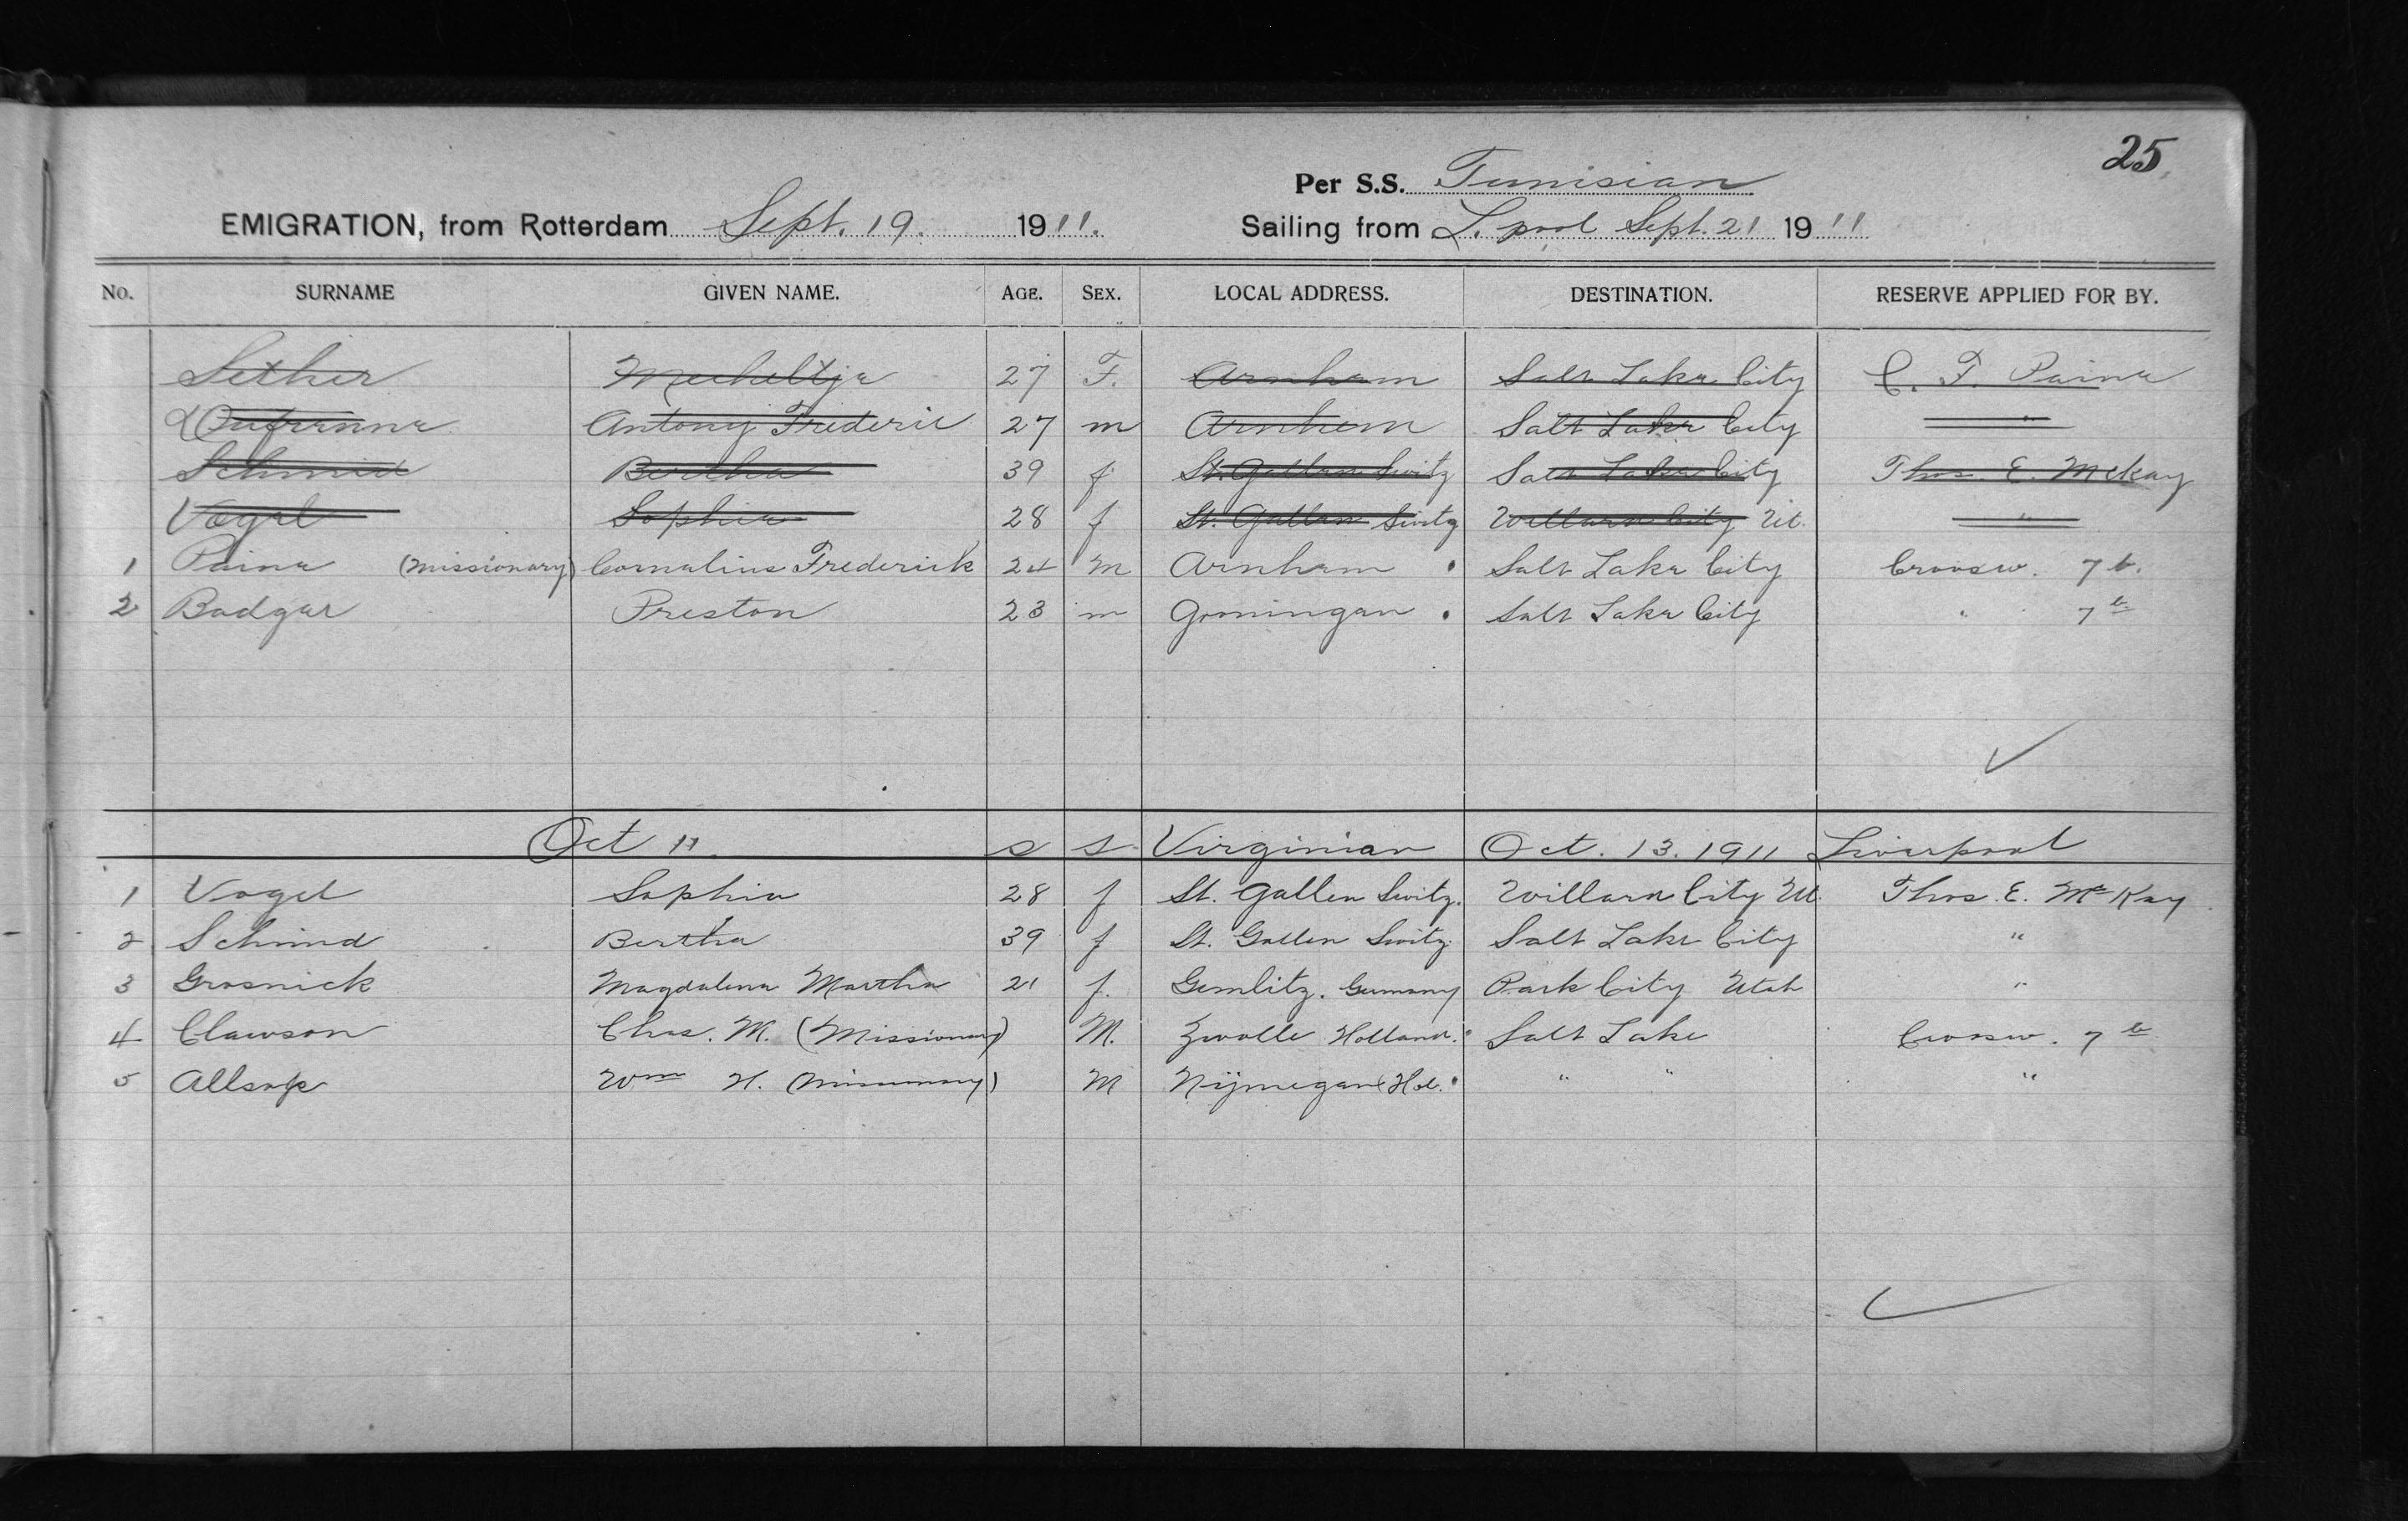 25
Per S.S. Tunisian
EMIGRATION, from Rotterdam Sept. 19. 1911. Sailing from L.pool Sept. 21 1911
No. SURNAME GIVEN NAME. AGE. SEX. LOCAL ADDRESS. DESTINATION. RESERVE APPLIED FOR BY.
Sether Mecheltje 27 F. Arnhem Salt Lake City C. F. Paine
Antony Frederic 27 m Arnhem Salt Lake City "
Schmid Bertha 39 f St. Gallen Switz Salt Lake City Thos. E. McKay
Vogel Sophie 28 f St. Gallen Switz Willard City Ut. "
1 Paine (Missionary) Cornelius Frederick 24 M Arnhem Salt Lake City Croosw. 7 b.
2 Badger Preston 23 m Groningen Salt Lake City " 7 b
Oct 11. S S Virginian Oct. 13. 1911 Liverpool
1 Vogel Sophia 28 f St. Gallen Switz. Willard City Ut. Thos. E. McKay
2 Schmid Bertha 39 f St. Gallen Switz. Salt Lake City "
3 Grosnick Magdalena Martha 21 f. Gemlitz. Germany Park City Utah "
4 Clawson Chas. M. (Missionary) M. Zwolle Holland. Salt Lake Croosw. 7 b
5 Allsop Wm H. (Missionary) M Nijmegen Hol. " " "